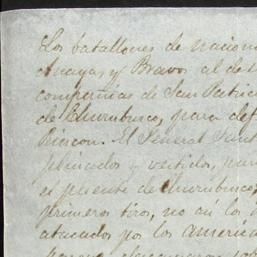 Los batallones de nacion
Anaya, y Bravos al de
compañias de San Patric
de Churubusco, para def
Rincon. El General Sant
y vestidos, par
el puente de Churubusco,
primeros tiros, no así los
atacados por los america
porque